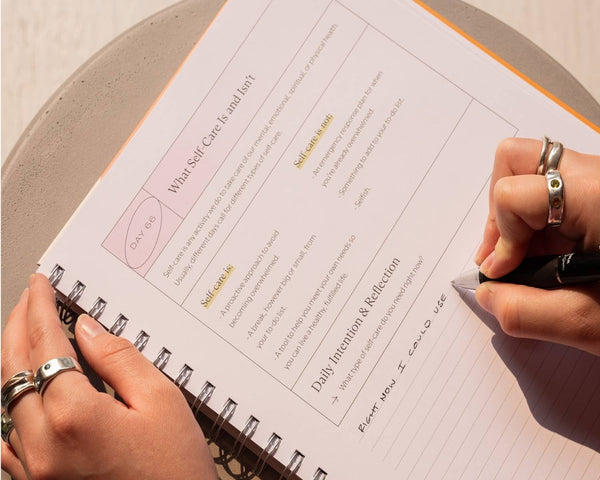 DAY 66
What Self-Care Is and Isn't
Self-care is any activity we do to take care of our mental, emotional, spiritual, or physical health.
Usually, different days call for different types of self-care.
Self-care is:
- A proactive approach to avoid
becoming overwhelmed.
- A break, however big or small, from
your to-do list.
- A tool to help you meet your own needs so
you can live a healthy, fulfilled life.
Self-care is not:
- An emergency response plan for when
you're already overwhelmed.
- Something to add to your to-do list.
- Selfish.
Daily Intention & Reflection
→ What type of self-care do you need right now?
RIGHT NOW I COULD USE